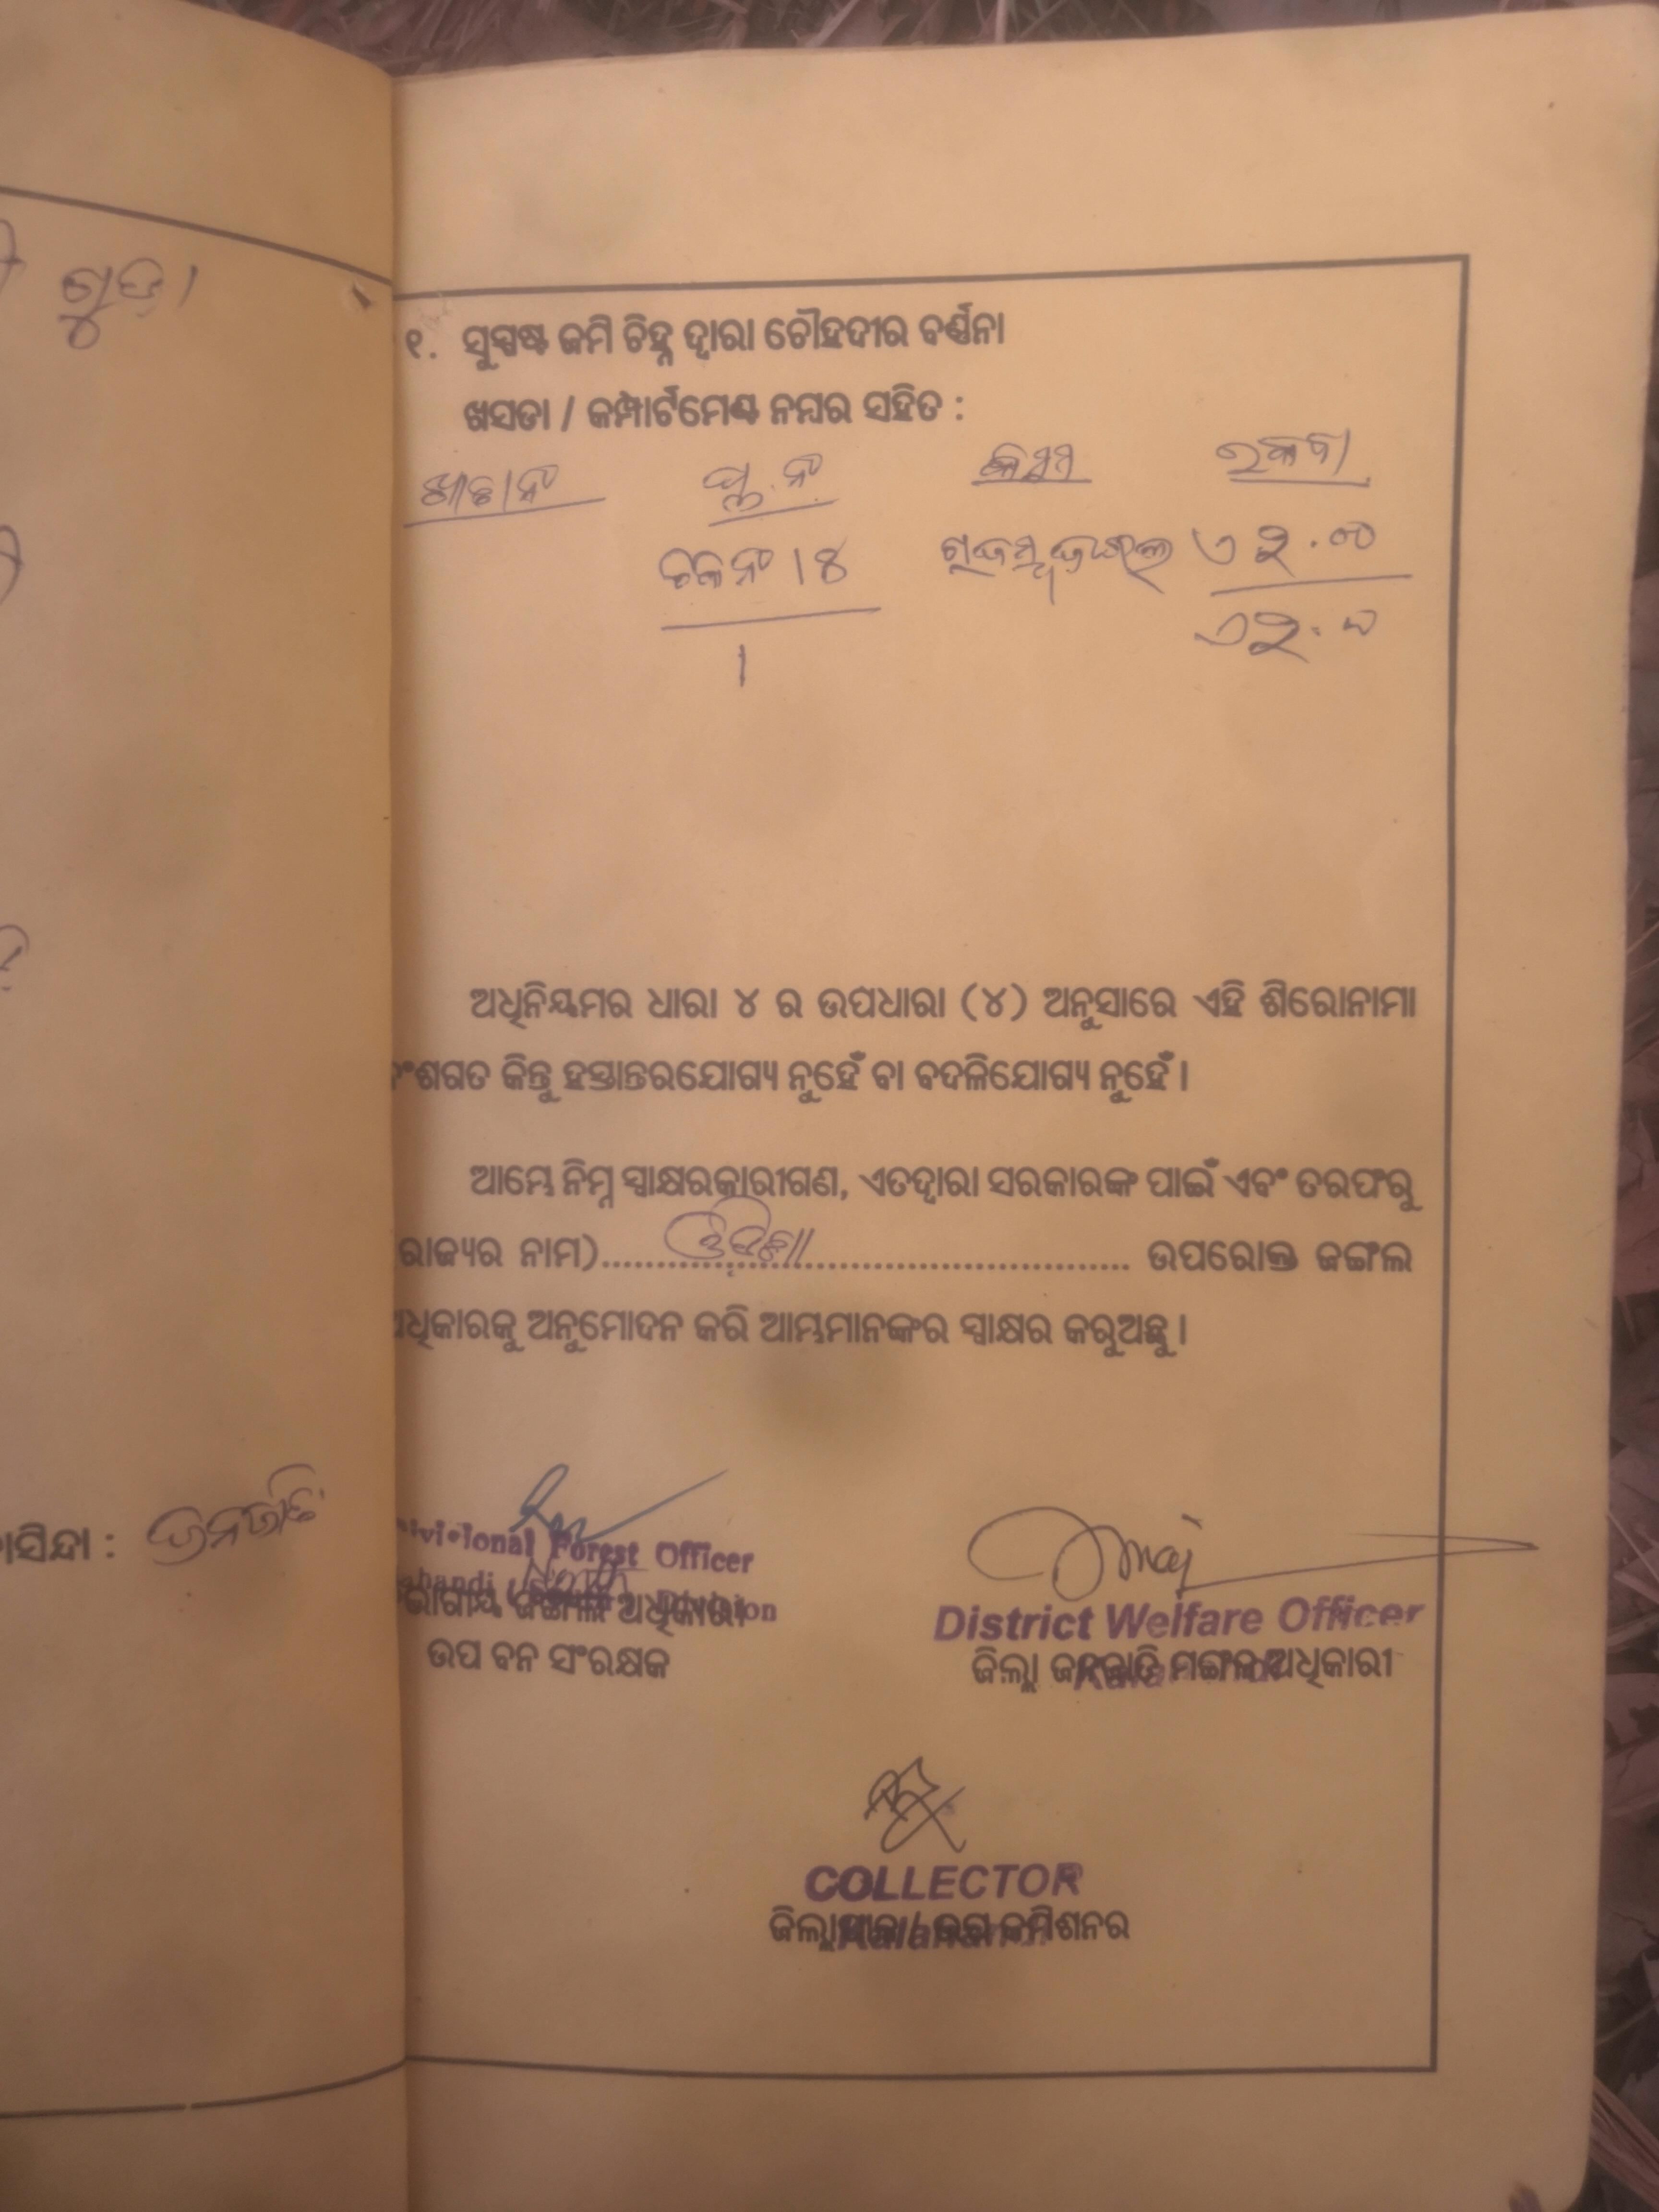 ଗୁଡା
ବାସିନ୍ଦା :
୧. ସୁସ୍ପଷ୍ଟ ଜମି ଚିହ୍ନ ଦ୍ୱାରା ଚୌହଦୀର ବର୍ଣ୍ଣନା
ଖସଡା / କମ୍ପାର୍ଟମେଣ୍ଟ ନମ୍ବର ସହିତ :
ଖାତା ନଂ ପ୍ଲ. ନଂ କିସମ ରକବା
1
ଅଧିନିୟମର ଧାରା ୪ ର ଉପଧାରା (୪) ଅନୁସାରେ ଏହି ଶିରୋନାମା
ବଂଶଗତ କିନ୍ତୁ ହସ୍ତାନ୍ତରଯୋଗ୍ୟ ନୁହେଁ ବା ବଦଳିଯୋଗ୍ୟ ନୁହେଁ ।
ଆମ୍ଭେ ନିମ୍ନ ସ୍ୱାକ୍ଷରକାରୀଗଣ, ଏତଦ୍ୱାରା ସରକାରଙ୍କ ପାଇଁ ଏବଂ ତରଫରୁ
ରାଜ୍ୟର ନାମ)........ଓଡିଶା........ ଉପରୋକ୍ତ ଜଙ୍ଗଲ
ଅଧିକାରକୁ ଅନୁମୋଦନ କରି ଆମ୍ଭମାନଙ୍କର ସ୍ୱାକ୍ଷର କରୁଅଛୁ ।
Divisional Forest Officer
Division
ଭାଗୀୟ ଜଙ୍ଗଲ ଅଧିକାରୀ
ଉପ ବନ ସଂରକ୍ଷକ
District Welfare Officer
ଜିଲ୍ଲା ଜନଜାତି ମଙ୍ଗଳ ଅଧିକାରୀ
COLLECTOR
Kalahandi
ଜିଲ୍ଲାପାଳ / ଉପ କମିଶନର